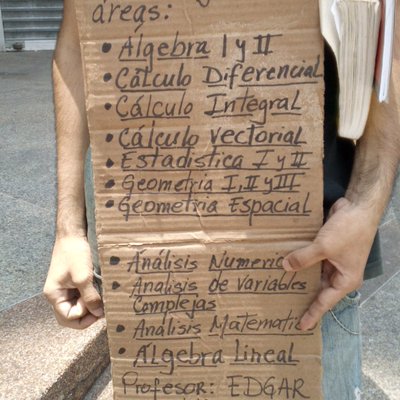 áreas:
• Álgebra I y II
• Cálculo Diferencial
• Cálculo Integral
• Cálculo Vectorial
• Estadistica I y II
• Geometria I, II y III
• Geometria Espacial
• Análisis Numeric
• Analisis de Variables
Complejas
• Análisis Matemati
• Álgebra Lineal
Profesor: EDGAR